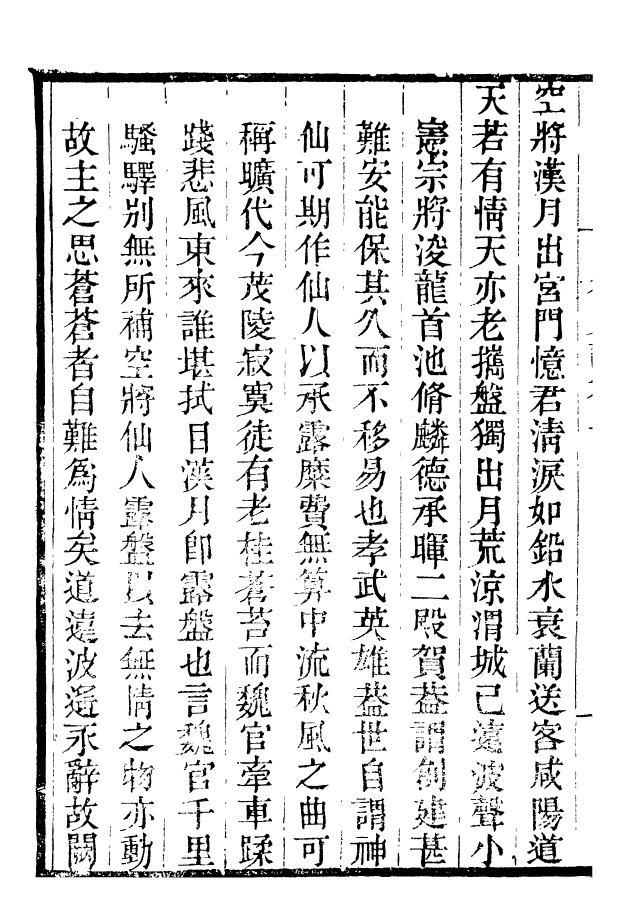 空將漢月出宮門憶君淸淚如鉛水衰蘭送客咸陽道
天若有情天亦老攜盤獨出月荒涼渭城已遠波聲小
憲宗將浚龍首池脩麟德承暉二殿賀葢謂創建甚
難安能保其久而不移易也孝武英雄葢世自謂神
仙可期作仙人以承露糜費無算中流秋風之曲可
稱曠代今茂陵寂寞徒有老桂蒼苔而魏官牽車蹂
踐悲風東來誰堪拭目漢月卽露盤也言魏官千里
騷驛別無所補空將仙人露盤以去無情之物亦動
故主之思蒼蒼者自難爲情矣道遠波遙永辭故闕